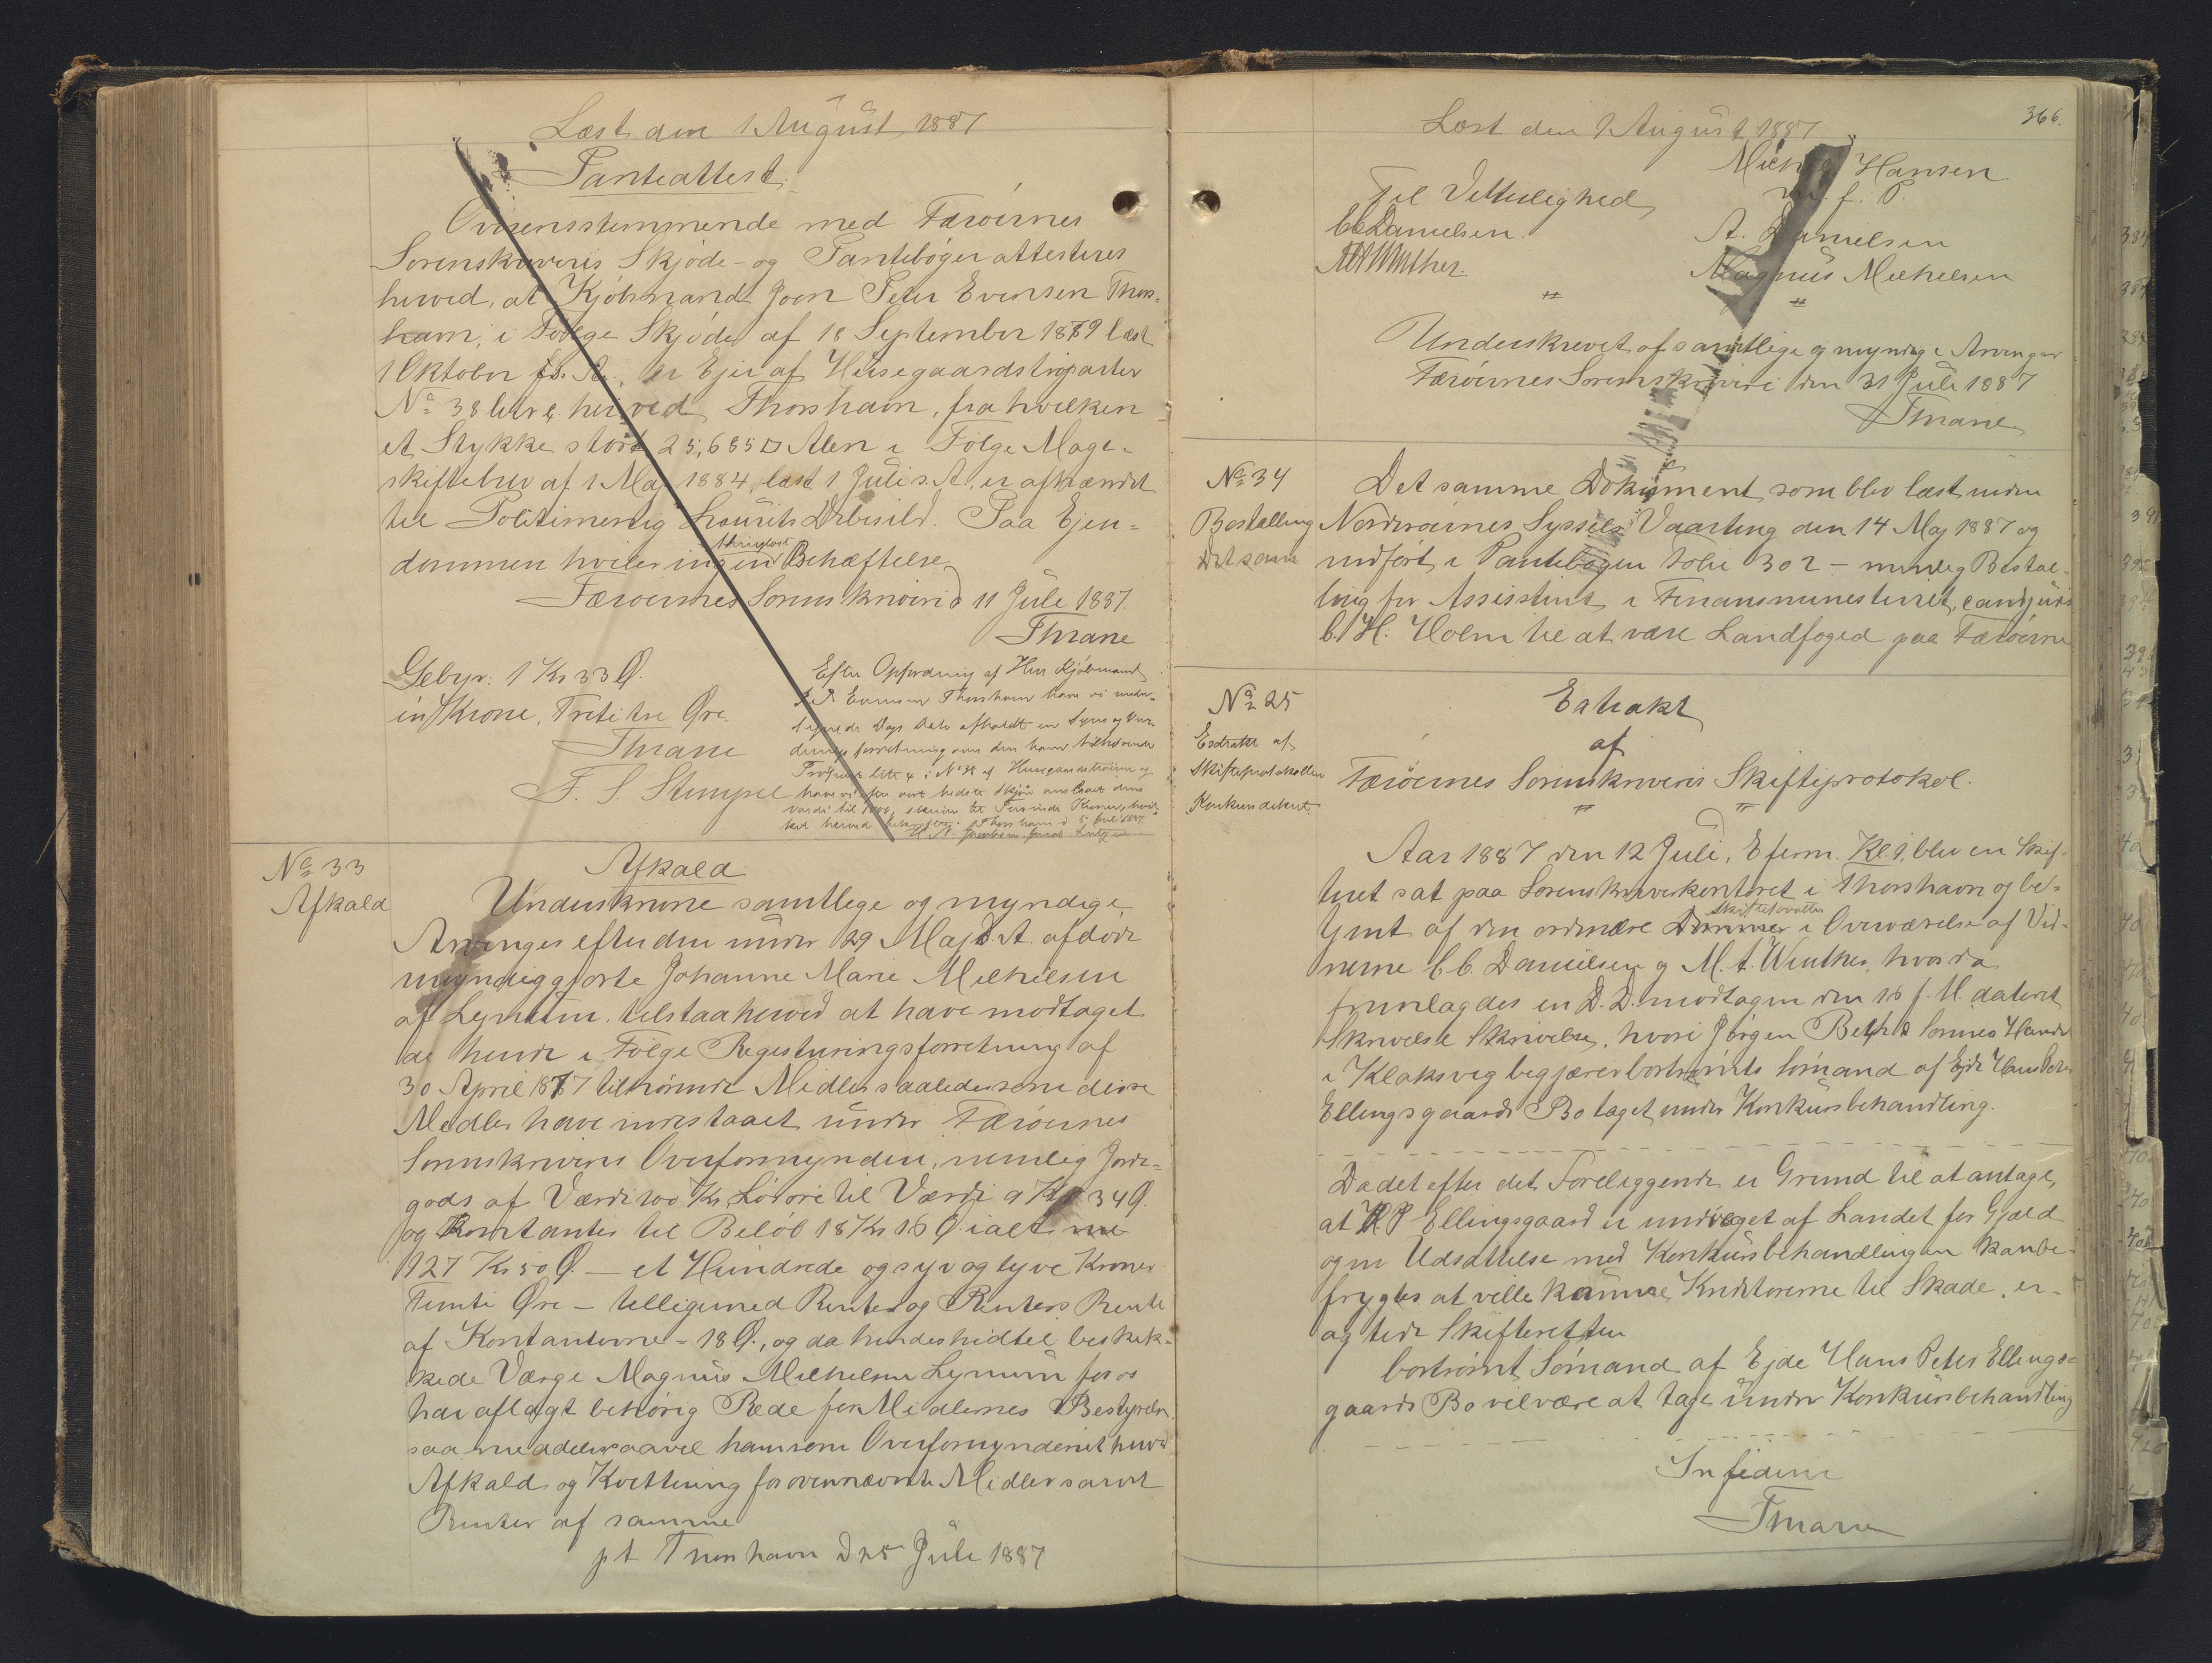 Læst den 1 August 1887
Panteattest.
Overensstemmende med Færøernes
Sorenskriveris Skjøde- og Pantebøger attesteres
herved, at Kjøbmand Joen Peter Evensen Thors-
havn, i Følge Skjøde af 18 September 1879 læst
1 Oktober s. A., er Ejer af Husegaardstrøparter
No 38 herved Thorshavn, fra hvilken
et Stykke stort 25,685 □ Alen i Følge Mage-
skiftebrev af 1 Maj 1884, læst 1 Juli s. A. er afhændet
til Politimestig Lourits Debisild. Paa Ejen-
dommen hviler ingen thinglæst Behæftelse
Færøernes Sorenskriveri d 11 Juli 1887.
Thrane
Gebyr: 1 Kr 33 Ø.
en Krone, Treti tre Øre
Thrane
F. S. Stempel
Efter Opfordring af Herr Kjøbmand
J. P. Evensen Thorshavn have vi under-
tegnede Dags Dato afholdt en Syns og Vur-
derings forretning over den ham tilhørende
Trøpart litr 4 i No 38 af Husegaardstrøerne og
have vi efter vort bedste Skjøn anslaaet dens
Værdi til Kroner, hvil-
ket herved Thorshavn d 5 Juli 1887
H. N. Jacobsen
No 33
Afkald
Afkald
Underskrevne samtlege og myndige
Arvinger efter den under 29 Maj d. A. afdøde
myndiggjorte Johanne Marie Michelsen
af Lejnum, tilstaa herved at have modtaget
de hende i Følge Registreringsforretning af
30 April 1877 tilhørende Midler saaledes som disse
Midler have indestaaet under Færøernes
Sorenskriveris Overformynderi, nemlig Jorde-
gods af Værdi 100 Kr. Løsøre til Værdi 9 Kr 34 Ø.
og Kontanter til Beløb 18 Kr 16 Ø. ialt
127 Kr 50 Ø. – et Hundrede og syv og tyve Kroner
Femti Øre – tilligemed Renter og Renters Rente
af Kontanterne – 18 Ø., og da hendes hidtil beskik-
kede Værge Magnus Michelsen Lejnum for os
har aflagt behørig Rede for Midlernes Bestyrelse
saa meddeles saavel ham som Overformynderiet herved
Afkald og Kvittering for ovennævnte Midler samt
Renter af samme
pt Thorshavn d 25 Juli 1887
366.
Læst den 1 August 1887
Hansen
m. f. P.
Til Vitterlighed
C. C. Danielsen.
A. Danielsen
M. A. Winther.
Magnus Michelsen
Underskrevet af samtlige og myndige Arvinger
Færøernes Sorenskriveri den 31 Juli 1887
Thrane
No 34
Bestalling
Det samme Dokument som blev læst inden
Norderøernes Syssels Vaarting den 14 Maj 1887 og
indført i Pantebogen Folio 302 – nemlig Bestal-
ling for Assistent i Finansministeriet, cand juris
C. H. Holm til at være Landfoged paa Færøerne
No 25
Exdrakt af
Skifteprotokollen
Konkursdekret.
Extrakt
af
Færøernes Sorenskriveris Skifteprotokol.
Aar 1887 den 12 Juli, Eferm. Kl. 9, blev en Skif-
teret sat paa Sorenskriverkontoret i Thorshavn og be-
tjent af den ordinære Dommer Skifteforvalter i Overværelse af Vid-
nerne C. C. Danielsen og M. A. Winther, hvor da
fremlagdes en D. D. modtagen den 16 f. M. dateret
Skrivelse Skrivelse, hvori Jørgen Bech & Sønnes Handel
i Klaksvig begjærer bortrømte Sømand af Ejde Hans Peter
Ellingsgaards Bo taget under Konkursbehandling.
Da det efter det Foreliggende er Grund til at antage,
at H P Ellingsgaard er undviget af Landet for Gjæld
og en Udsættelse med Konkursbehandlingen kan be-
frygtes at ville komme Kreditorerne til Skade, er-
agtede Skifteretten
bortrømt Sømand af Ejde Hans Peter Ellings-
gaards Bo vil være at tage under Konkursbehandling
In fidem
Thrane